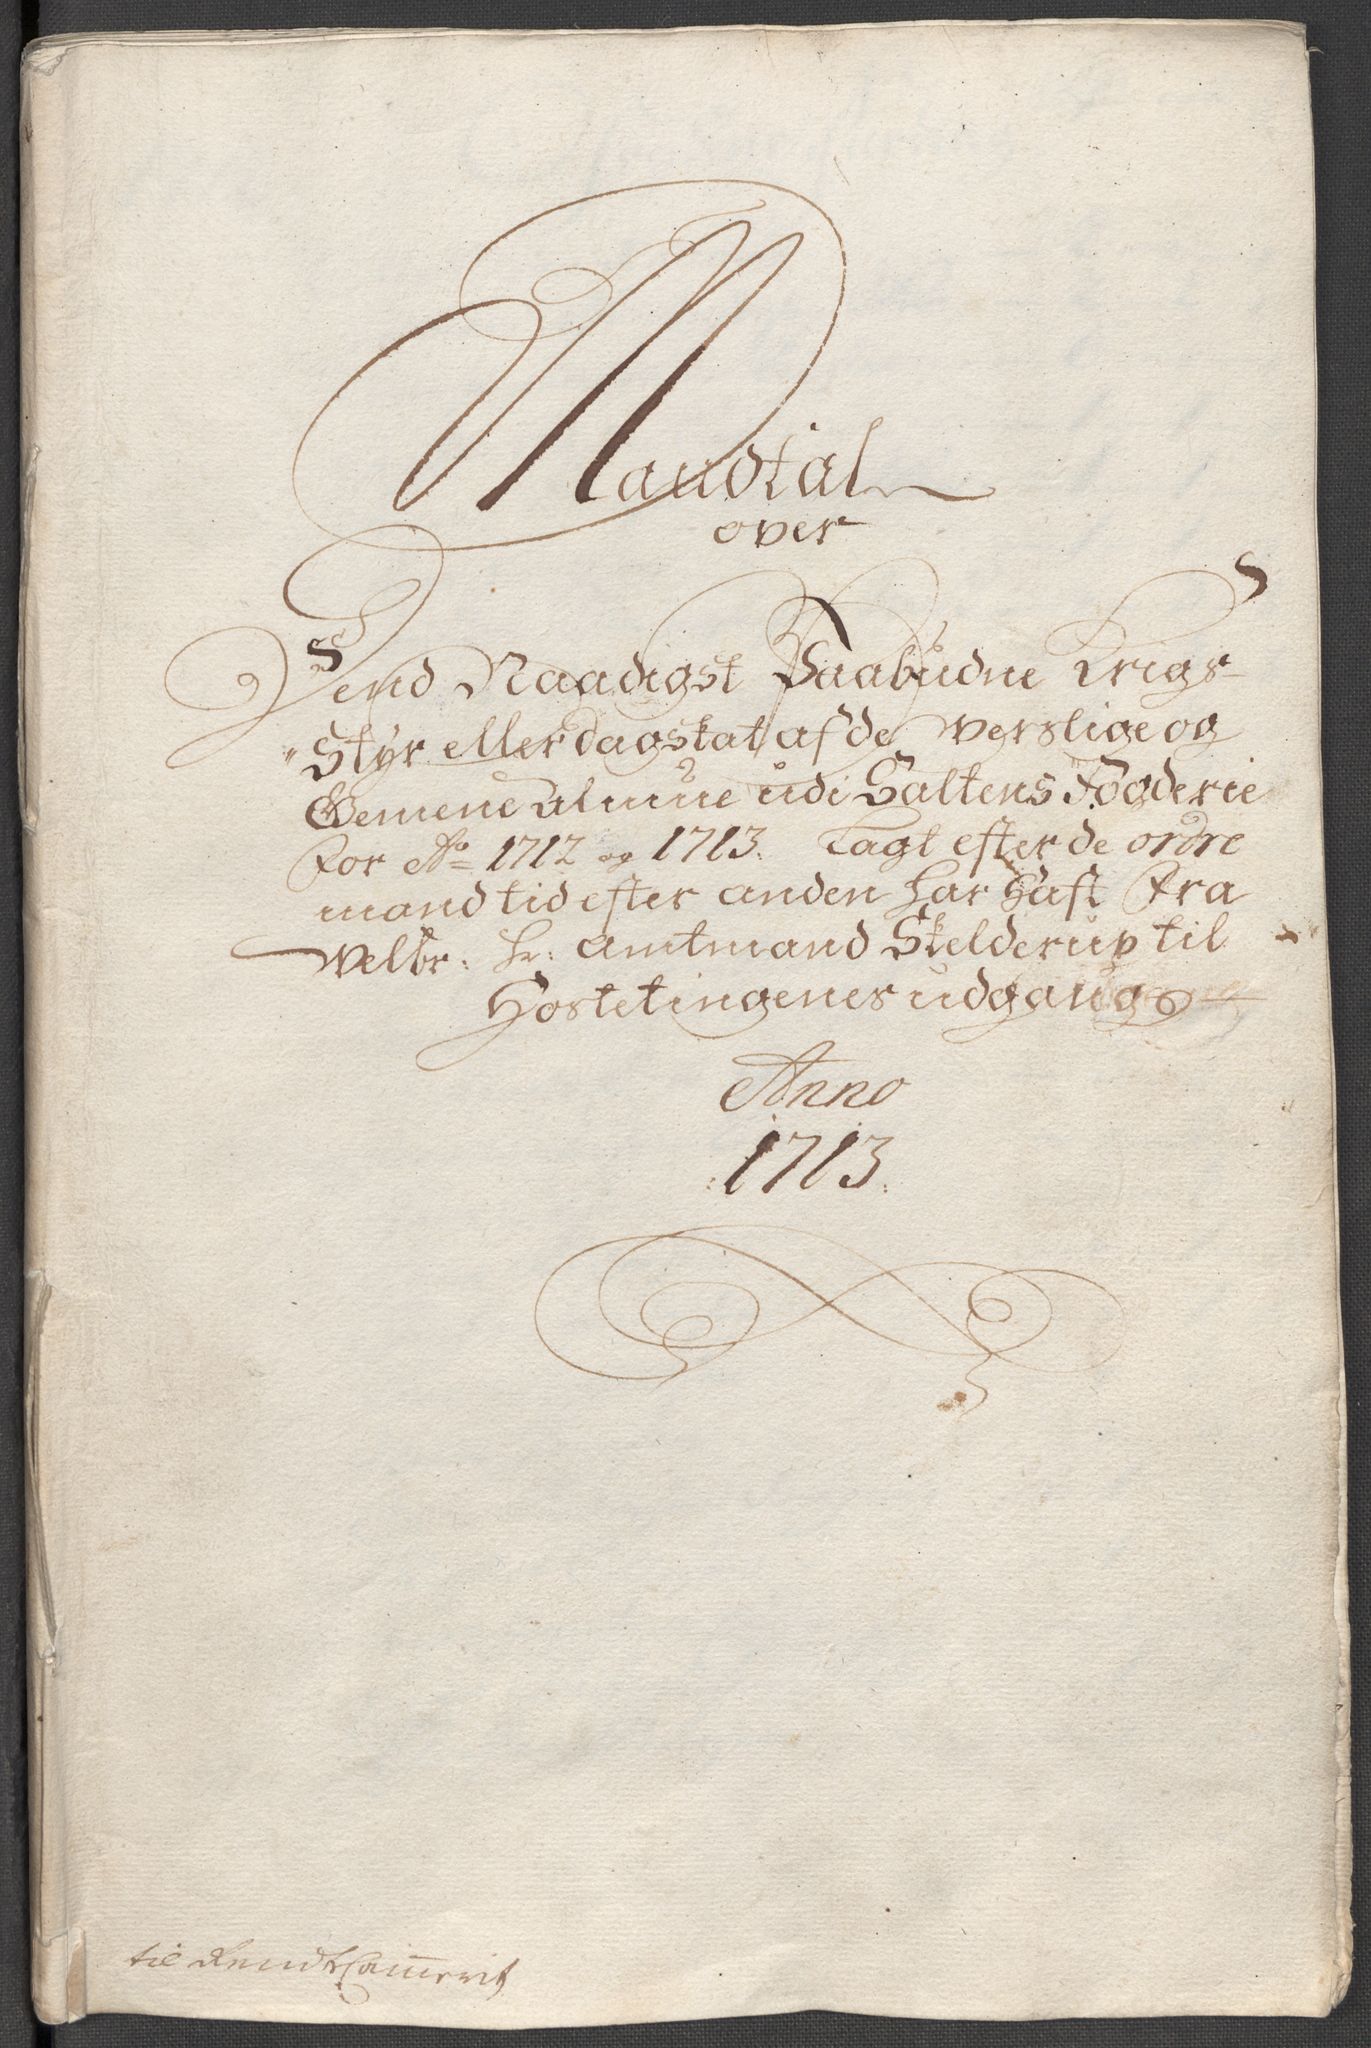 Mandtal
over
Dend Naadigst Paabudne Krigs-
Styr eller dagskat af de Verslige og
Gemene almue udi Saltens Fogderie
for Ao 1712 og 1713. Tagt efter de ordre
mand tid efter anden har Haft Fra
Velbr: Hr: Amtmand Skelderup til
Hostetingenes udgang
Anno
1713.
til RendtCammerit